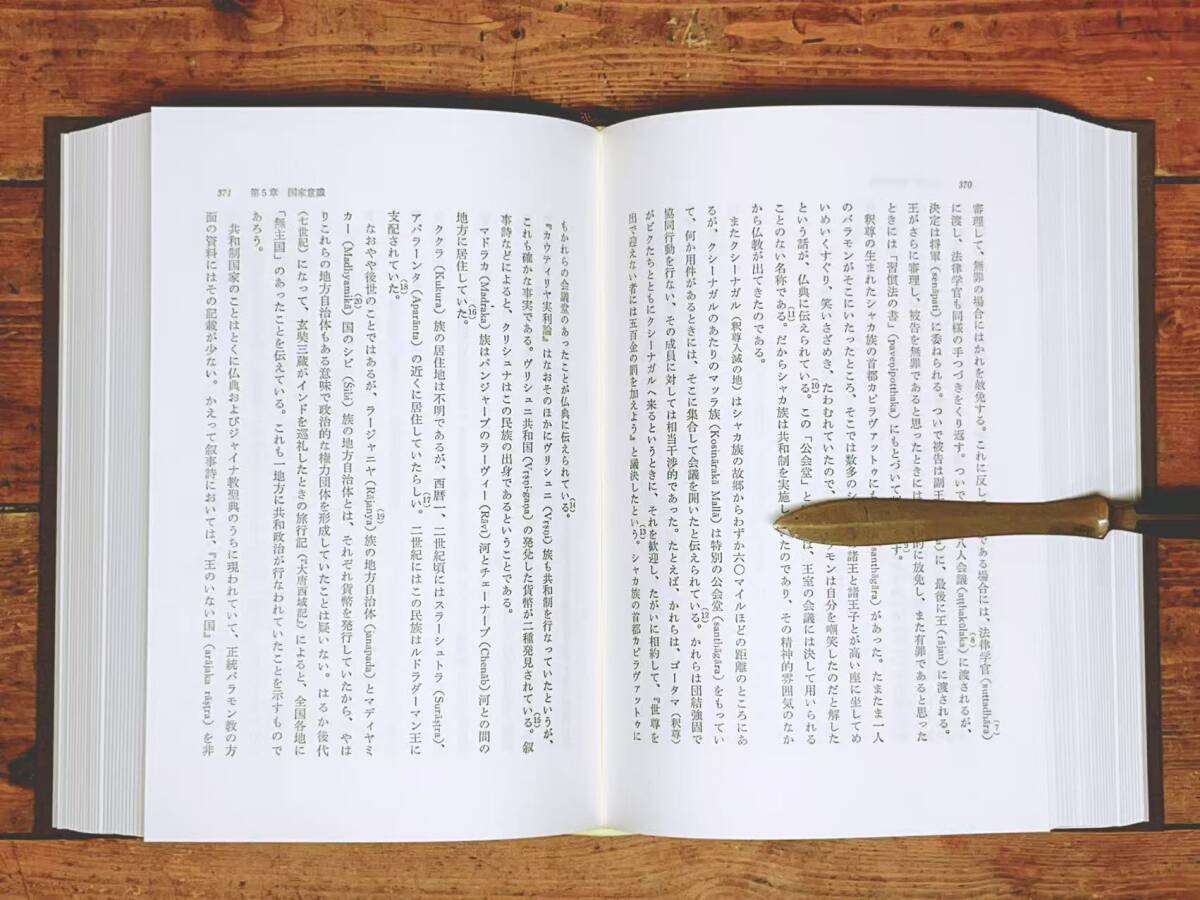 370
審理して、無罪の場合にはかれを赦免する。これに反し である場合には、法律学官(suttadhāra)(7)
に渡し、法律学官も同様の手つづきをくり返す。ついで 八人会議(aṭṭhakūlaka)(8)に渡されるが、
決定は将軍(senāpati)に委ねられる。ついで被告は副王 に、最後に王(rājan)に渡される。
王がさらに審理し、被告を無罪であると思ったときには 的に放免し、また有罪であると思った
ときには「習慣法の書」(paveṇipotthaka)にもとづいて す。(9)
釈尊の生まれたシャカ族の首都カピラヴァットゥにも santhāgāra)があった。たまたま一人
のバラモンがそこにいたったところ、そこでは数多のシ 諸王と諸王子とが高い座に坐してめ
いめいくすぐり、笑いさざめき、たわむれていたので、 モンは自分を嘲笑したのだと解した
という話が、仏典に伝えられている。(10)この「公会堂」と は、王室の会議には決して用いられる
ことのない名称である。(11)だからシャカ族は共和制を実施し たのであり、その精神的雰囲気のなか
から仏教が出てきたのである。
またクシーナガル(釈尊入滅の地)はシャカ族の故郷からわずか六〇マイルほどの距離のところにあ
るが、クシーナガルのあたりのマッラ族(Kosinārakā Mallā)は特別の公会堂(santhāgāra)をもってい
て、何か用件があるときには、そこに集合して会議を開いたと伝えられている。(12)かれらは団結強固で
協同行動を行ない、その成員に対しては相当干渉的であった。たとえば、かれらは、ゴータマ(釈尊)
がビクたちとともにクシーナガルへ来るというときに、それを歓迎し、たがいに相約して、『世尊を
出で迎えない者には五百金の罰を加えよう』と議決したという。(13)シャカ族の首都カピラヴァットゥに
371 第5章 国家意識
もかれらの会議堂のあったことが仏典に伝えられている。(14)
『カウティリヤ実利論』はなおそのほかにヴリシュニ(Vṛṣṇi)族も共和制を行なっていたというが、
これも確かな事実である。ヴリシュニ共和国(Vṛṣṇi-gaṇa)の発発した貨幣が二種発見されている。(15)叙
事詩などによると、クリシュナはこの民族の出身であるということである。
マドラカ(Madraka)族はパンジャーブのラーヴィー(Rāvi)河とチェーナーブ(Chenāb)河との間の
地方に居住していた。(16)
ククラ(Kukura)族の居住地は不明であるが、西暦一、二世紀頃にはスラーシュトラ(Surāṣṭra)、
アパラーンタ(Aparānta)の近くに居住していたらしい。(17)二世紀にはこの民族はルドラダーマン王に
支配されていた。(18)
なおやや後世のことではあるが、ラージャニヤ(Rājanya)族の地方自治体(janapada)とマディヤミ(19)
カー(Madhyamikā)国のシビ(Śibi)族の地方自治体とは、それぞれ貨幣を発行していたから、やは
りこれらの地方自治体もある意味で政治的な権力団体を形成していたことは疑いない。はるか後代
(七世紀)になって、玄奘三蔵がインドを巡礼したときの旅行記(『大唐西域記』)によると、全国各地に
「無主国」のあったことを伝えている。これも一地方に共和政治が行なわれていたことを示すもので
あろう。
共和制国家のことはとくに仏典およびジャイナ教聖典のうちに現われていて、正統バラモン教の方
面の資料にはその記載が少ない。かえって叙事詩においては、『王のいない国』(arājaka rāṣṭra)を非